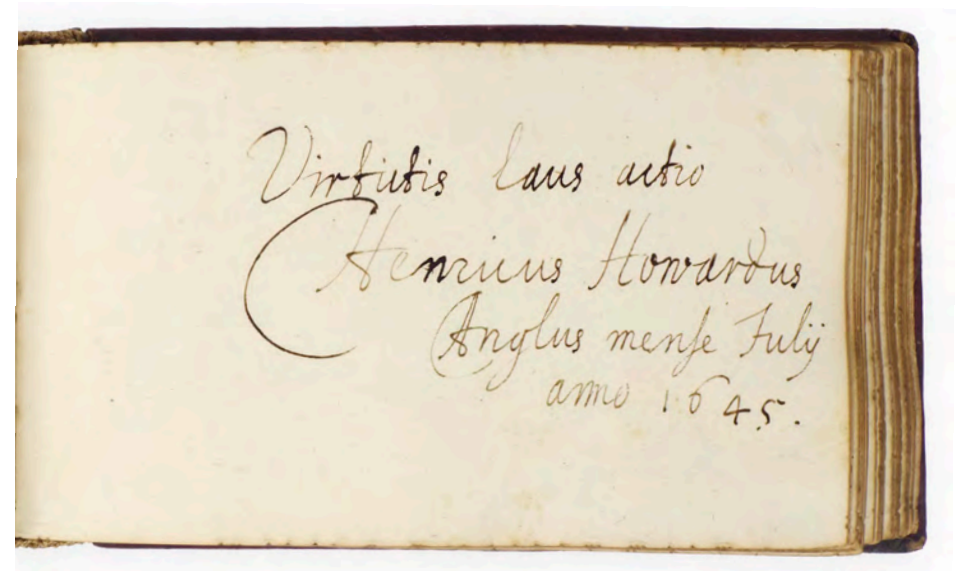 Virtutis laus actio
Henricus Howardus
Anglus mense Julij
anno 1645.